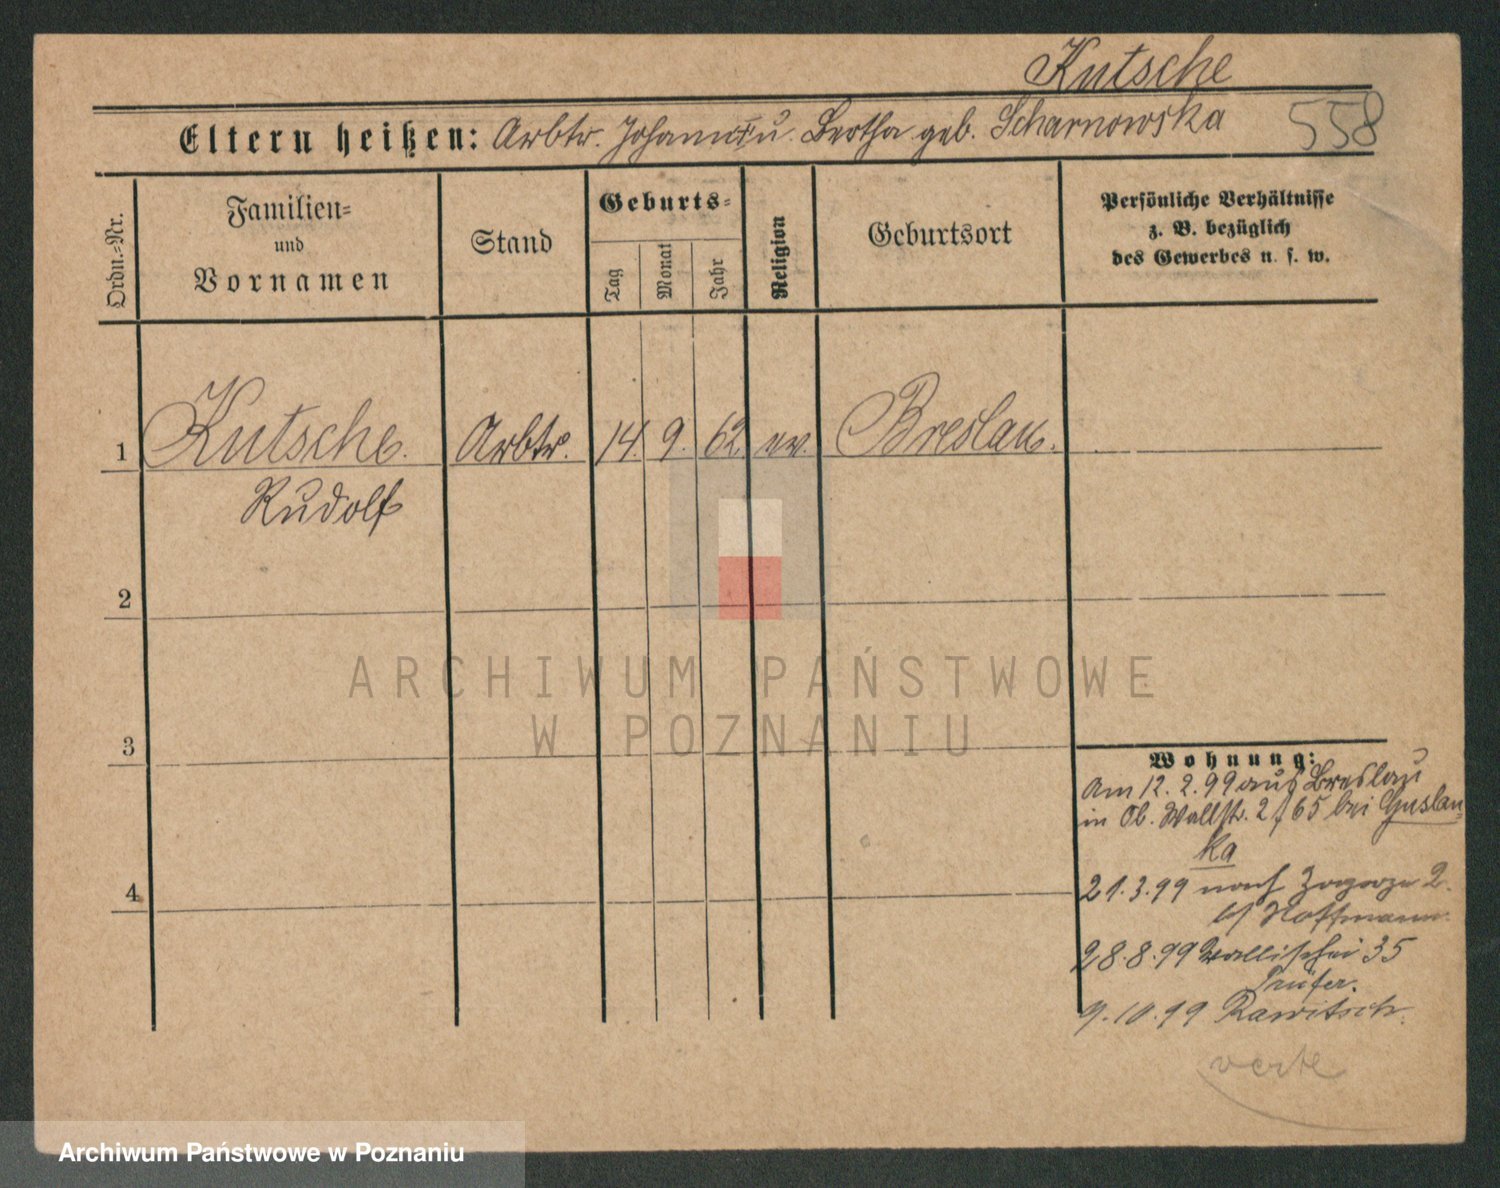 Kutsche
558
Eltern heißen: Arbtr. Johann u. Bertha geb. Scharnowska
Ordn.-Nr.
Familien-
und
Vornamen
Stand
Geburts-
Tag
Monat
Jahr
Religion
Geburtsort
Persönliche Verhältnisse
z. B. bezüglich
des Gewerbes u. s. w.
1 Kutsche. Arbtr. 14. 9. 62. ev. Breslau.
Rudolf
2
3
4
Wohnung:
Am 12. 2. 99 aus Breslau
in Ob. Wallstr. 2 65 bei Guslau-
ka
21.3.99 nach Zagorze 2.
b/ Hoffmann.
28.8.99 Wallischei 35
Prüfer.
9.10.99 Rawitsch.
verte
ARCHIWUM PAŃSTWOWE
W POZNANIU
Archiwum Państwowe w Poznaniu